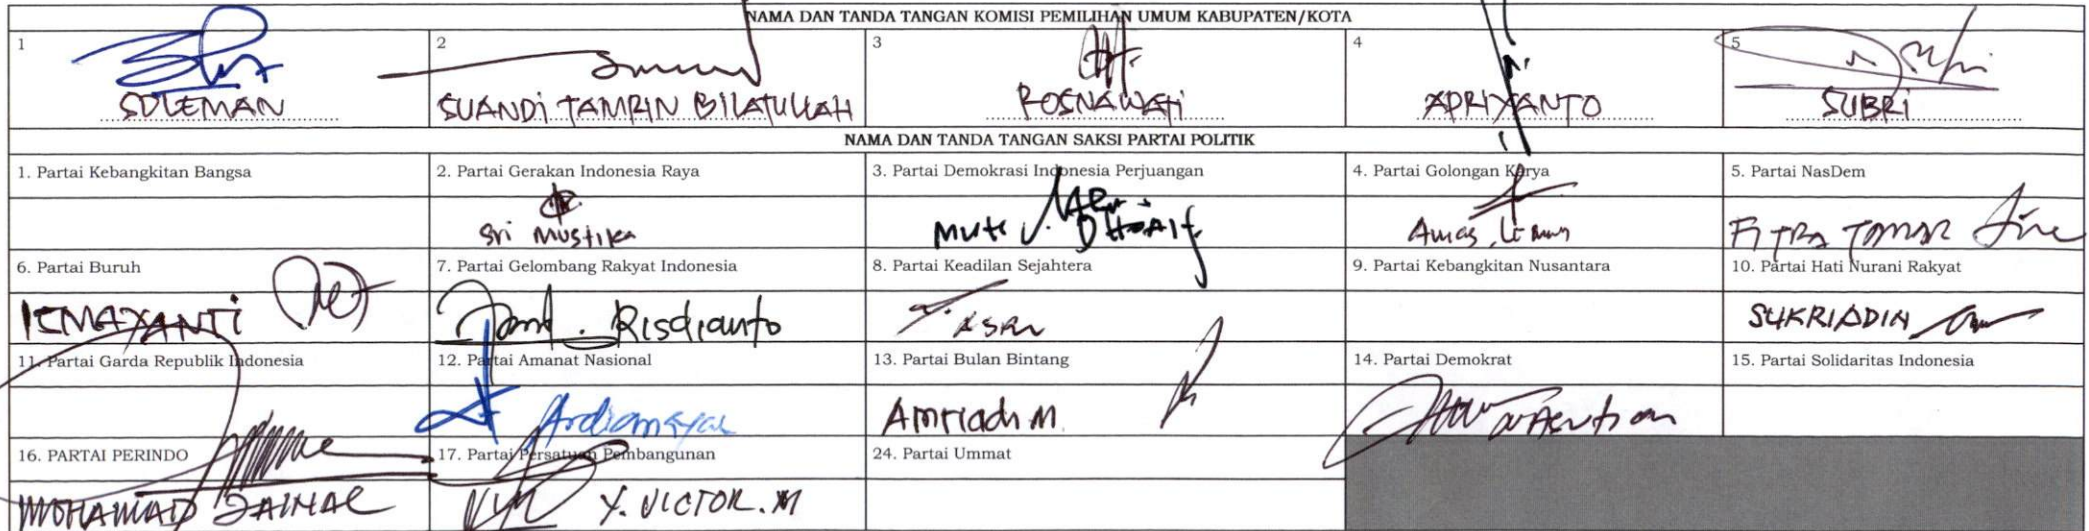 NAMA DAN TANDA TANGAN KOMISI PEMILIHAN UMUM KABUPATEN/KOTA
1 2 3 4 5
SULEMAN SUANDI TAMRIN BILATULLAH ROSNAWATI APRIYANTO SUBRI
NAMA DAN TANDA TANGAN SAKSI PARTAI POLITIK
1. Partai Kebangkitan Bangsa 2. Partai Gerakan Indonesia Raya 3. Partai Demokrasi Indonesia Perjuangan 4. Partai Golongan Karya 5. Partai NasDem
Sri Mustika FITRA
6. Partai Buruh 7. Partai Gelombang Rakyat Indonesia 8. Partai Keadilan Sejahtera 9. Partai Kebangkitan Nusantara 10. Partai Hati Nurani Rakyat
ICMAYANTI Risdianto SUKRIADIN
11. Partai Garda Republik Indonesia 12. Partai Amanat Nasional 13. Partai Bulan Bintang 14. Partai Demokrat 15. Partai Solidaritas Indonesia
Amriadi M.
16. PARTAI PERINDO 17. Partai Persatuan Pembangunan 24. Partai Ummat
MOHAMAD ZAINAL Y. VICTOR. M